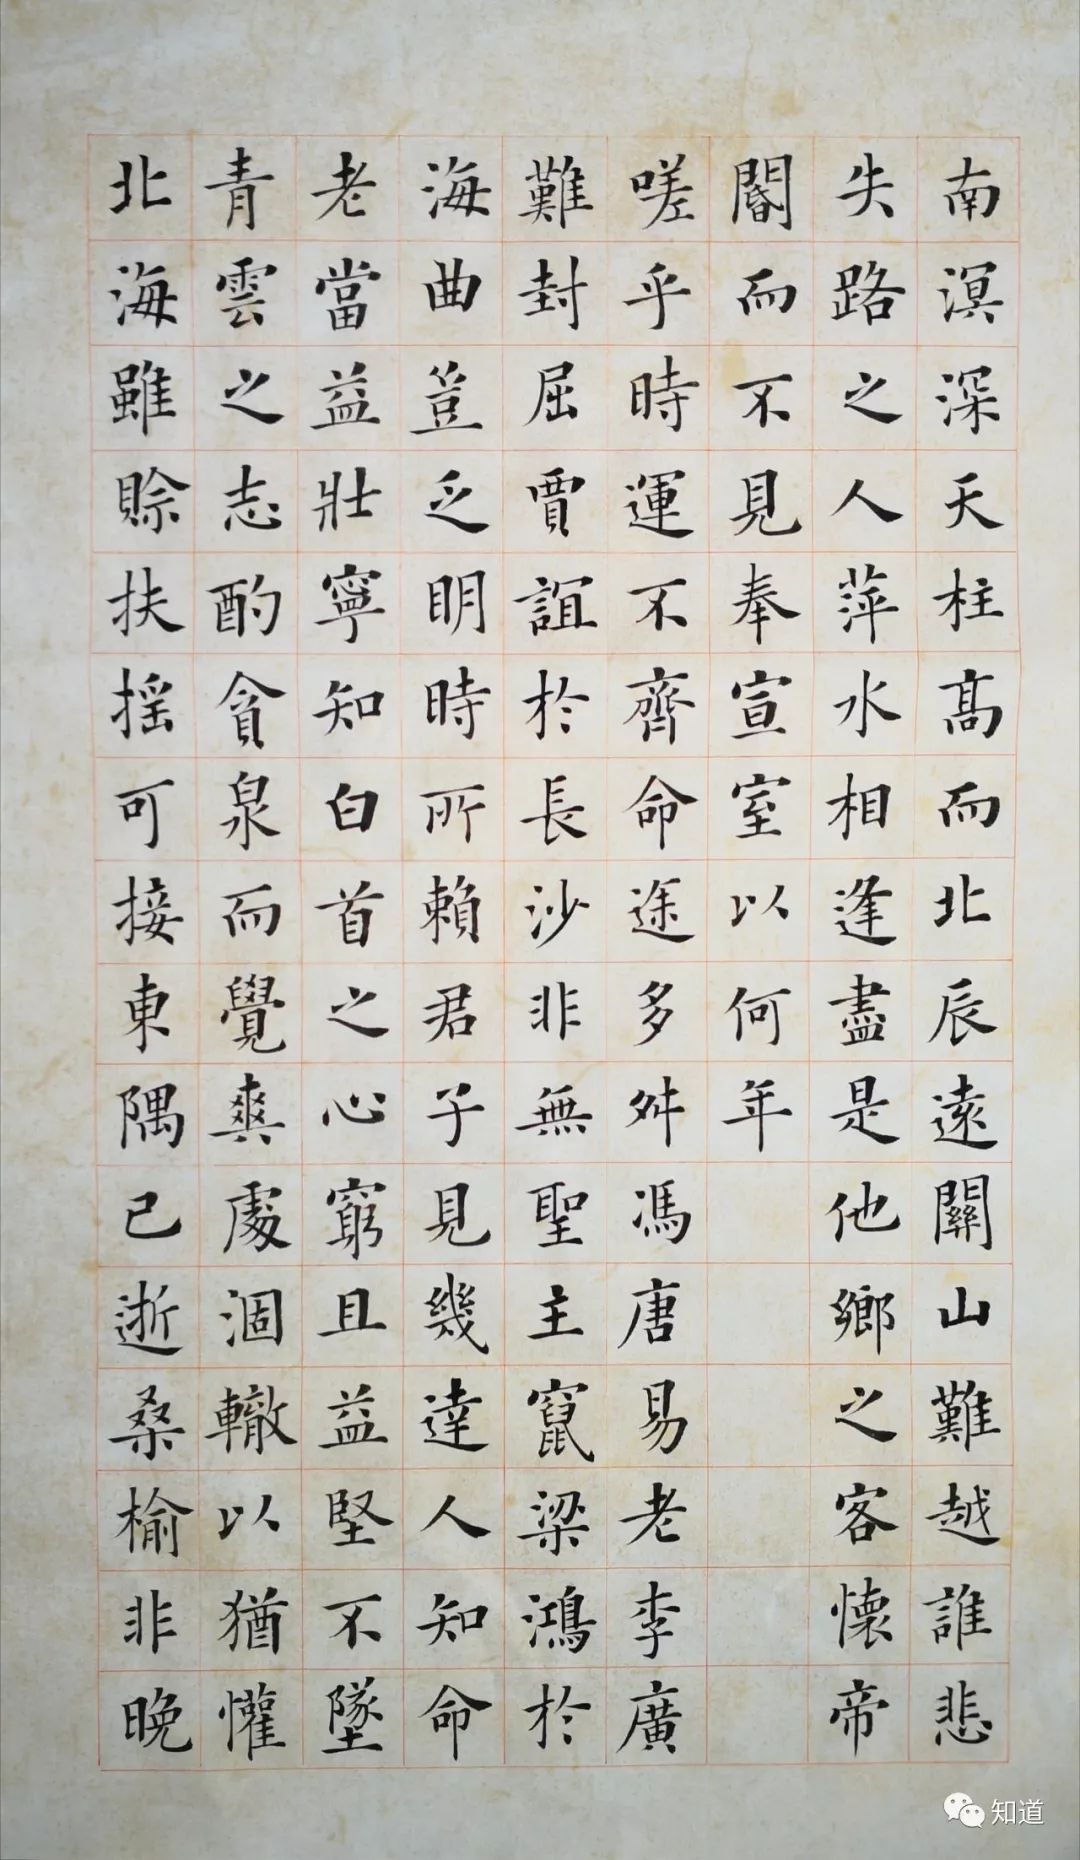 南溟深天柱高而北辰遠關山難越誰悲
失路之人萍水相逢盡是他鄉之客懷帝
閽而不見奉宣室以何年
嗟乎時運不齊命途多舛馮唐易老李廣
難封屈賈誼於長沙非無聖主竄梁鴻於
海曲豈乏眀時所賴君子見幾達人知命
老當益壯寧知白首之心窮且益堅不墜
青雲之志酌貪泉而覺爽處涸轍以猶懽
北海雖賒扶搖可接東隅已逝桑榆非晚
知道